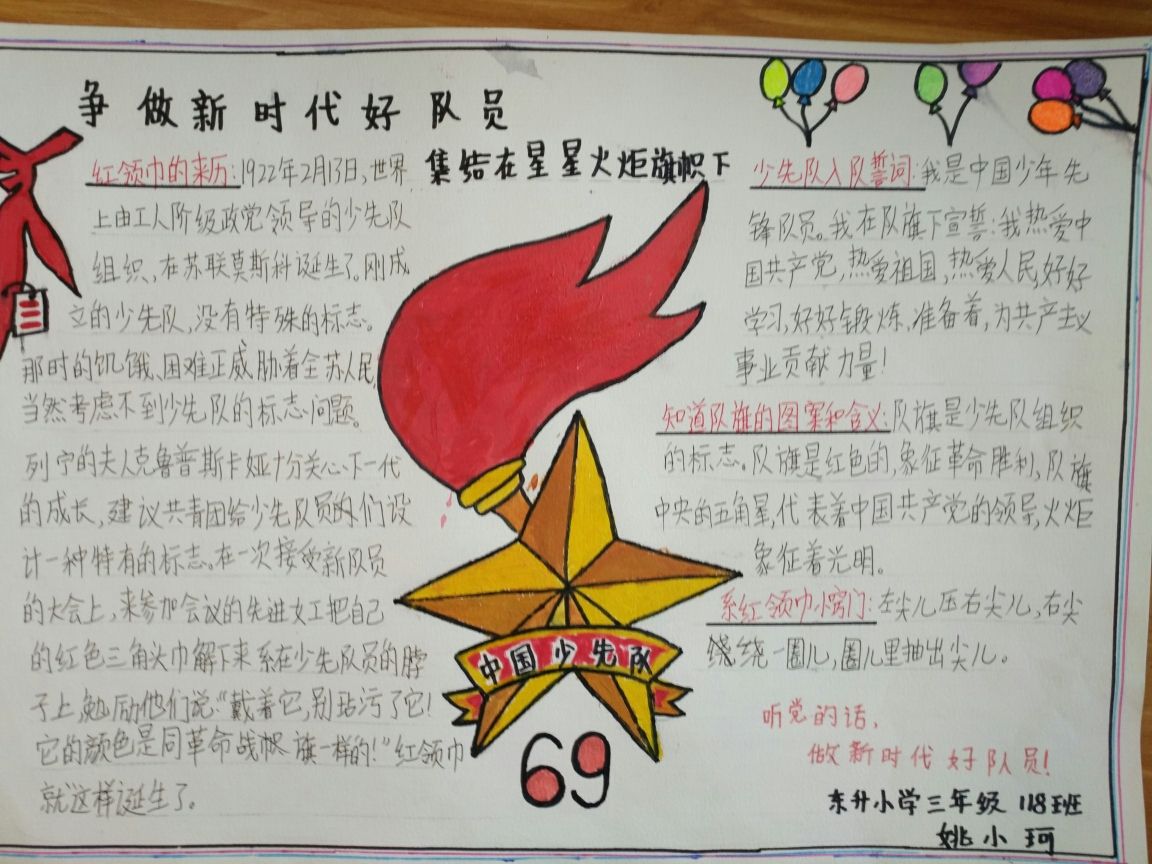 争做新时代好队员
集结在星星火炬旗帜下
红领巾的来历:1922年2月13日,世界
上由工人阶级政党领导的少先队
组织、在苏联莫斯科诞生了。刚成
立的少先队,没有特殊的标志。
那时的饥饿、困难正威胁着全苏人民,
当然考虑不到少先队的标志问题。
列宁的夫人克鲁普斯卡娅十分关心下一代
的成长,建议共青团给少先队员们设
计一种特有的标志。在一次接受新队员
的大会上,来参加会议的先进女工把自己
的红色三角头巾解下来系在少先队员的脖
子上,勉励他们说:“戴着它,别玷污了它!
它的颜色是同革命战帜旗一样的!”红领巾
就这样诞生了。
中国少先队
69
少先队入队誓词:我是中国少年先
锋队员。我在队旗下宣誓:我热爱中
国共产党,热爱祖国,热爱人民,好好
学习,好好锻炼、准备着,为共产主义
事业贡献力量!
知道队旗的图案和含义:队旗是少先队组织
的标志。队旗是红色的,象征革命胜利,队旗
中央的五角星,代表着中国共产党的领导,火炬
象征着光明。
系红领巾小窍门:左尖儿压右尖儿,右尖
绕绕一圈儿,圈儿里抽出尖儿。
听党的话,
做新时代好队员!
东升小学三年级 118班
姚小珂